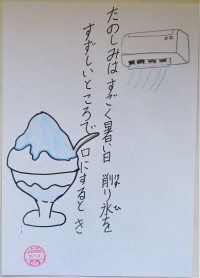 たのしみはすごく暑い日 削り氷を
ひ
すずしいところで口にするとき